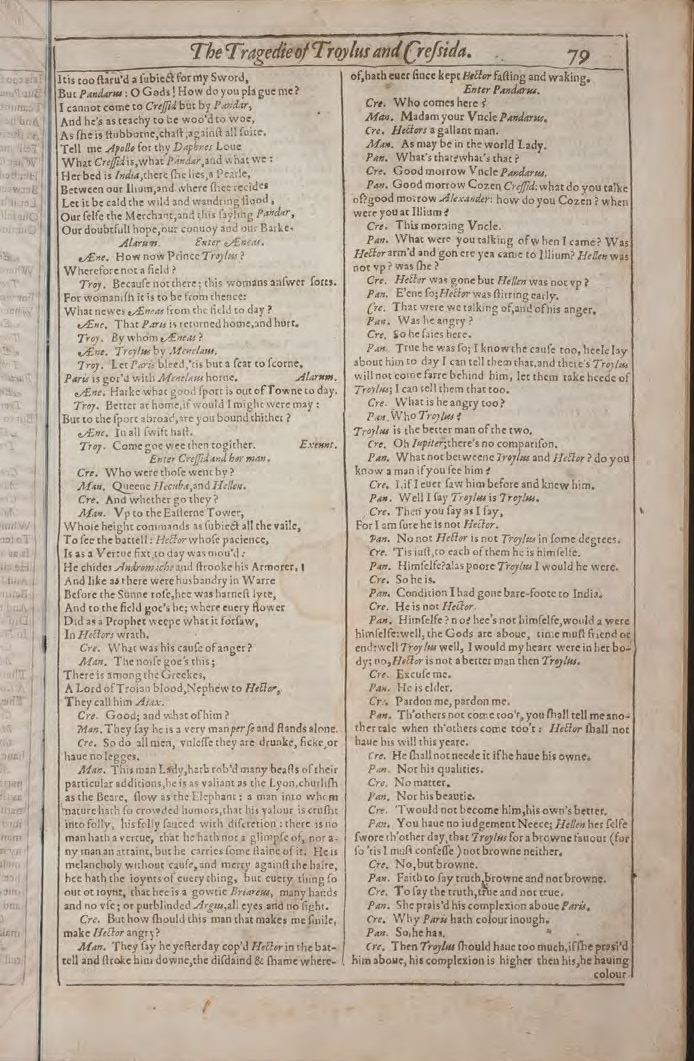 The Tragedie of Troylus and Cressida. 79
It is too staru'd a subiect for my Sword,
But Pandarus: O Gods! How do you plague me?
I cannot come to Cressid but by Pandar,
And he's as teachy to be woo'd to woe,
As she is stubborne, chast, against all suite.
Tell me Apollo for thy Daphnes Loue
What Cressid is, what Pandar, and what we:
Her bed is India, there she lies, a Pearle,
Between our Ilium, and where shee recides
Let it be cald the wild and wandring flood,
Our selfe the Merchant, and this sayling Pandar,
Our doubtfull hope, our conuoy and our Barke.
Alarum. Enter Æneas.
Æne. How now Prince Troylus?
Wherefore not a field?
Troy. Because not there; this womans answer sorts.
For womanish it is to be from thence:
What newes Æneas from the field to day?
Æne. That Paris is returned home, and hurt.
Troy. By whom Æneas?
Æne. Troylus by Menelaus.
Troy. Let Paris bleed, 'tis but a scar to scorne,
Paris is gor'd with Menelaus horne. Alarum.
Æne. Harke what good sport is out of Towne to day.
Troy. Better at home, if would I might were may:
But to the sport abroad, are you bound thither?
Æne. In all swift hast.
Troy. Come goe wee then togither. Exeunt.
Enter Cressid and her man.
Cre. Who were those went by?
Man. Queene Hecuba, and Hellen.
Cre. And whether go they?
Man. Vp to the Easterne Tower,
Whose height commands as subiect all the vaile,
To see the battell: Hector whose pacience,
Is as a Vertue fixt, to day was mou'd:
He chides Andromache and strooke his Armorer,
And like as there were husbandry in Warre
Before the Sunne rose, hee was harnest lyte,
And to the field goe's he; where euery flower
Did as a Prophet weepe what it forsaw,
In Hectors wrath.
Cre. What was his cause of anger?
Man. The noise goe's this;
There is among the Greekes,
A Lord of Troian blood, Nephew to Hector,
They call him Aiax.
Cre. Good; and what of him?
Man. They say he is a very man per se and stands alone.
Cre. So do all men, vnlesse they are drunke, sicke, or
haue no legges.
Man. This man Lady, hath rob'd many beasts of their
particular additions, he is as valiant as the Lyon, churlish
as the Beare, slow as the Elephant: a man into whom
nature hath so crowded humors, that his valour is crusht
into folly, his folly sauced with discretion: there is no
man hath a vertue, that he hath not a glimpse of, nor a-
ny man an attaint, but he carries some staine of it. He is
melancholy without cause, and merry against the haire,
hee hath the ioynts of euery thing, but euery thing so
out of ioynt, that hee is a gowtie Briareus, many hands
and no vse; or purblinded Argus, all eyes and no sight.
Cre. But how should this man that makes me smile,
make Hector angry?
Man. They say he yesterday cop'd Hector in the bat-
tell and stroke him downe, the disdaind & shame where-
of, hath euer since kept Hector fasting and waking.
Enter Pandarus.
Cre. Who comes here?
Man. Madam your Vncle Pandarus.
Cre. Hectors a gallant man.
Man. As may be in the world Lady.
Pan. What's that? what's that?
Cre. Good morrow Vncle Pandarus.
Pan. Good morrow Cozen Cressid: what do you talke
of? good morrow Alexander: how do you Cozen? when
were you at Illium?
Cre. This morning Vncle.
Pan. What were you talking of when I came? Was
Hector arm'd and gon ere yea came to Illium? Hellen was
not vp? was she?
Cre. Hector was gone but Hellen was not vp?
Pan. E'ene so; Hector was stirring early.
Cre. That were we talking of, and of his anger.
Pan. Was he angry?
Cre. So he saies here.
Pan. True he was so; I know the cause too, heele lay
about him to day I can tell them that, and there's Troylus
will not come farre behind him, let them take heede of
Troylus; I can tell them that too.
Cre. What is he angry too?
Pan. Who Troylus?
Troylus is the better man of the two.
Cre. Oh Iupiter; there's no comparison.
Pan. What not betweene Troylus and Hector? do you
know a man if you see him?
Cre. I, if I euer saw him before and knew him.
Pan. Well I say Troylus is Troylus.
Cre. Then you say as I say,
For I am sure he is not Hector.
Pan. No not Hector is not Troylus in some degrees.
Cre. 'Tis iust, to each of them he is himselfe.
Pan. Himselfe? alas poore Troylus I would he were.
Cre. So he is.
Pan. Condition I had gone bare-foote to India.
Cre. He is not Hector.
Pan. Himselfe? no? hee's not himselfe, would a were
himselfe: well, the Gods are aboue, time must friend or
end: well Troylus well, I would my heart were in her bo-
dy; no, Hector is not a better man then Troylus.
Cre. Excuse me.
Pan. He is elder.
Cre. Pardon me, pardon me.
Pan. Th'others not come too't, you shall tell me ano-
ther tale when th'others come too't: Hector shall not
haue his will this yeare.
Cre. He shall not neede it if he haue his owne.
Pan. Nor his qualities.
Cre. No matter.
Pan. Nor his beautie.
Cre. 'Twould not become him, his own's better.
Pan. You haue no iudgement Neece; Hellen her selfe
swore th'other day, that Troylus for a browne fauour (for
so 'tis I must confesse) not browne neither.
Cre. No, but browne.
Pan. Faith to say truth, browne and not browne.
Cre. To say the truth, true and not true.
Pan. She prais'd his complexion aboue Paris.
Cre. Why Paris hath colour inough.
Pan. So, he has.
Cre. Then Troylus should haue too much, if she prasi'd
him aboue, his complexion is higher then his, he hauing
colour